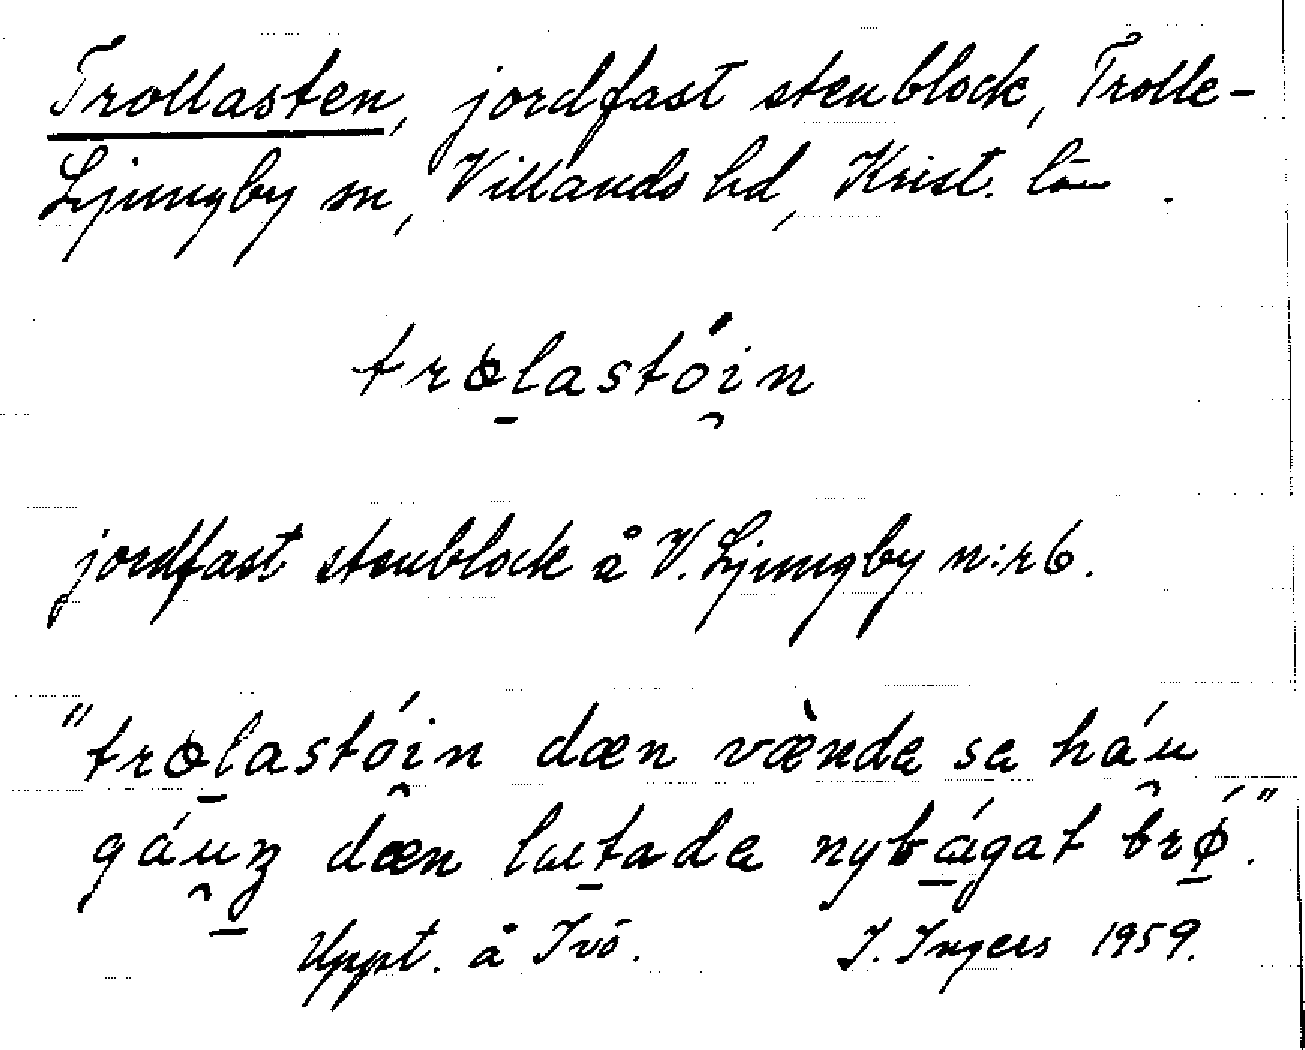 Trollasten, jordfast stenblock, Trolle-
Ljungby sn, Villands hd, Krist. län.
trɵlastóin
jordfast stenblock å V. Ljungby n:r 6.
"trɵlastóin dæn vændə sə háu
gáuz dæn lutadə nybágat brǿ."
Uppt. å Ivö. I. Ingers 1959.